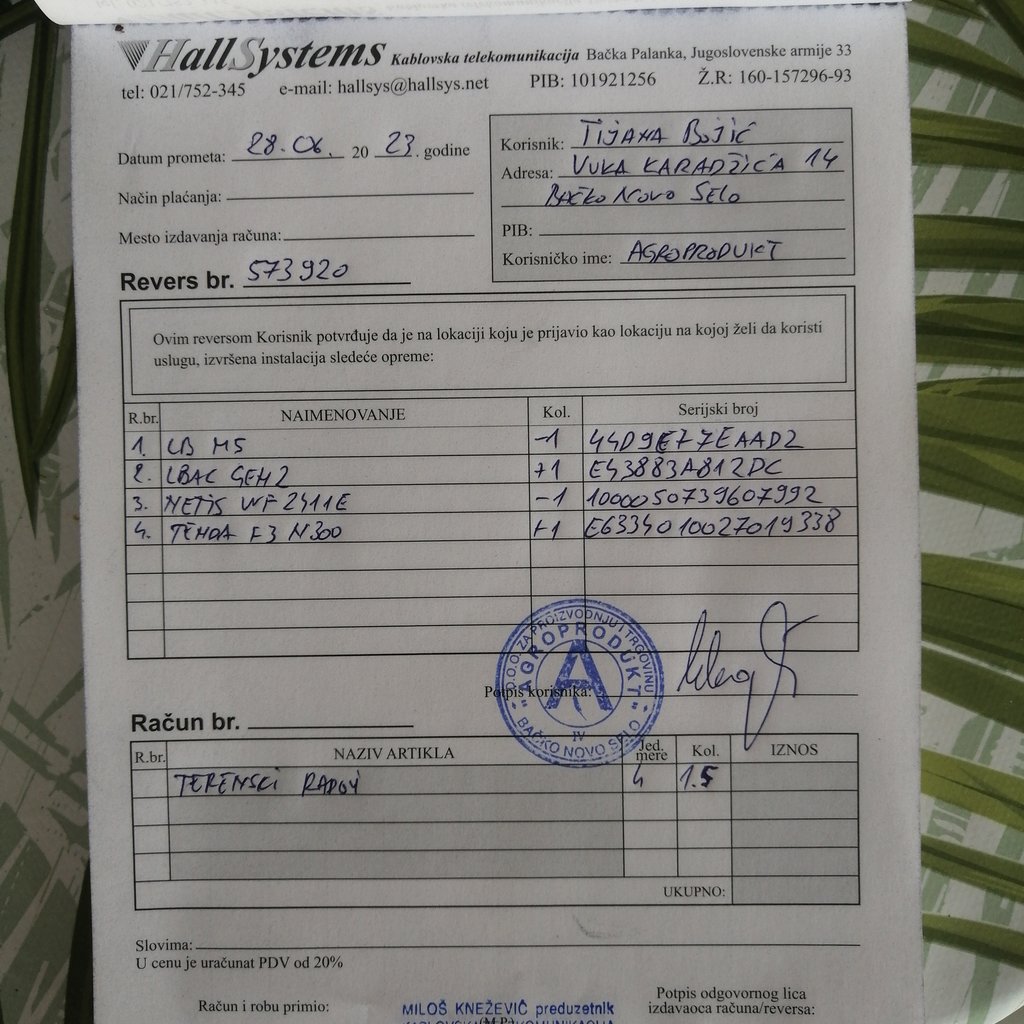 HallSystems Kablovska telekomunikacija Bačka Palanka, Jugoslovenske armije 33
tel: 021/752-345 e-mail: hallsys@hallsys.net PIB: 101921256 Ž.R: 160-157296-93
Datum prometa: 28.06. 20 23. godine
Način plaćanja:
Mesto izdavanja računa:
Revers br. 573920
Korisnik: TIJANA BOJIĆ
Adresa: VUKA KARADŽIĆA 14
BAČKO NOVO SELO
PIB:
Korisničko ime: AGROPRODUKT
Ovim reversom Korisnik potvrđuje da je na lokaciji koju je prijavio kao lokaciju na kojoj želi da koristi
uslugu, izvršena instalacija sledeće opreme:
R.br. NAIMENOVANJE Kol. Serijski broj
1. LB M5 -1 44D9E77EAAD2
2. LBAC GEN2 +1 E43883A812DC
3. NETIS WF2411E -1 1000050739607992
4. TENDA F3 N300 +1 E6334010027019338
D.O.O. ZA PROIZVODNJU I TRGOVINU
"AGROPRODUKT"
A
IV
BAČKO NOVO SELO
Potpis korisnika:
Račun br.
R.br. NAZIV ARTIKLA Jed. mere Kol. IZNOS
TERENSKI RADOVI 4 1.5
UKUPNO:
Slovima:
U cenu je uračunat PDV od 20%
Račun i robu primio:
MILOŠ KNEŽEVIĆ preduzetnik
(M.P.)
Potpis odgovornog lica
izdavaoca računa/reversa: